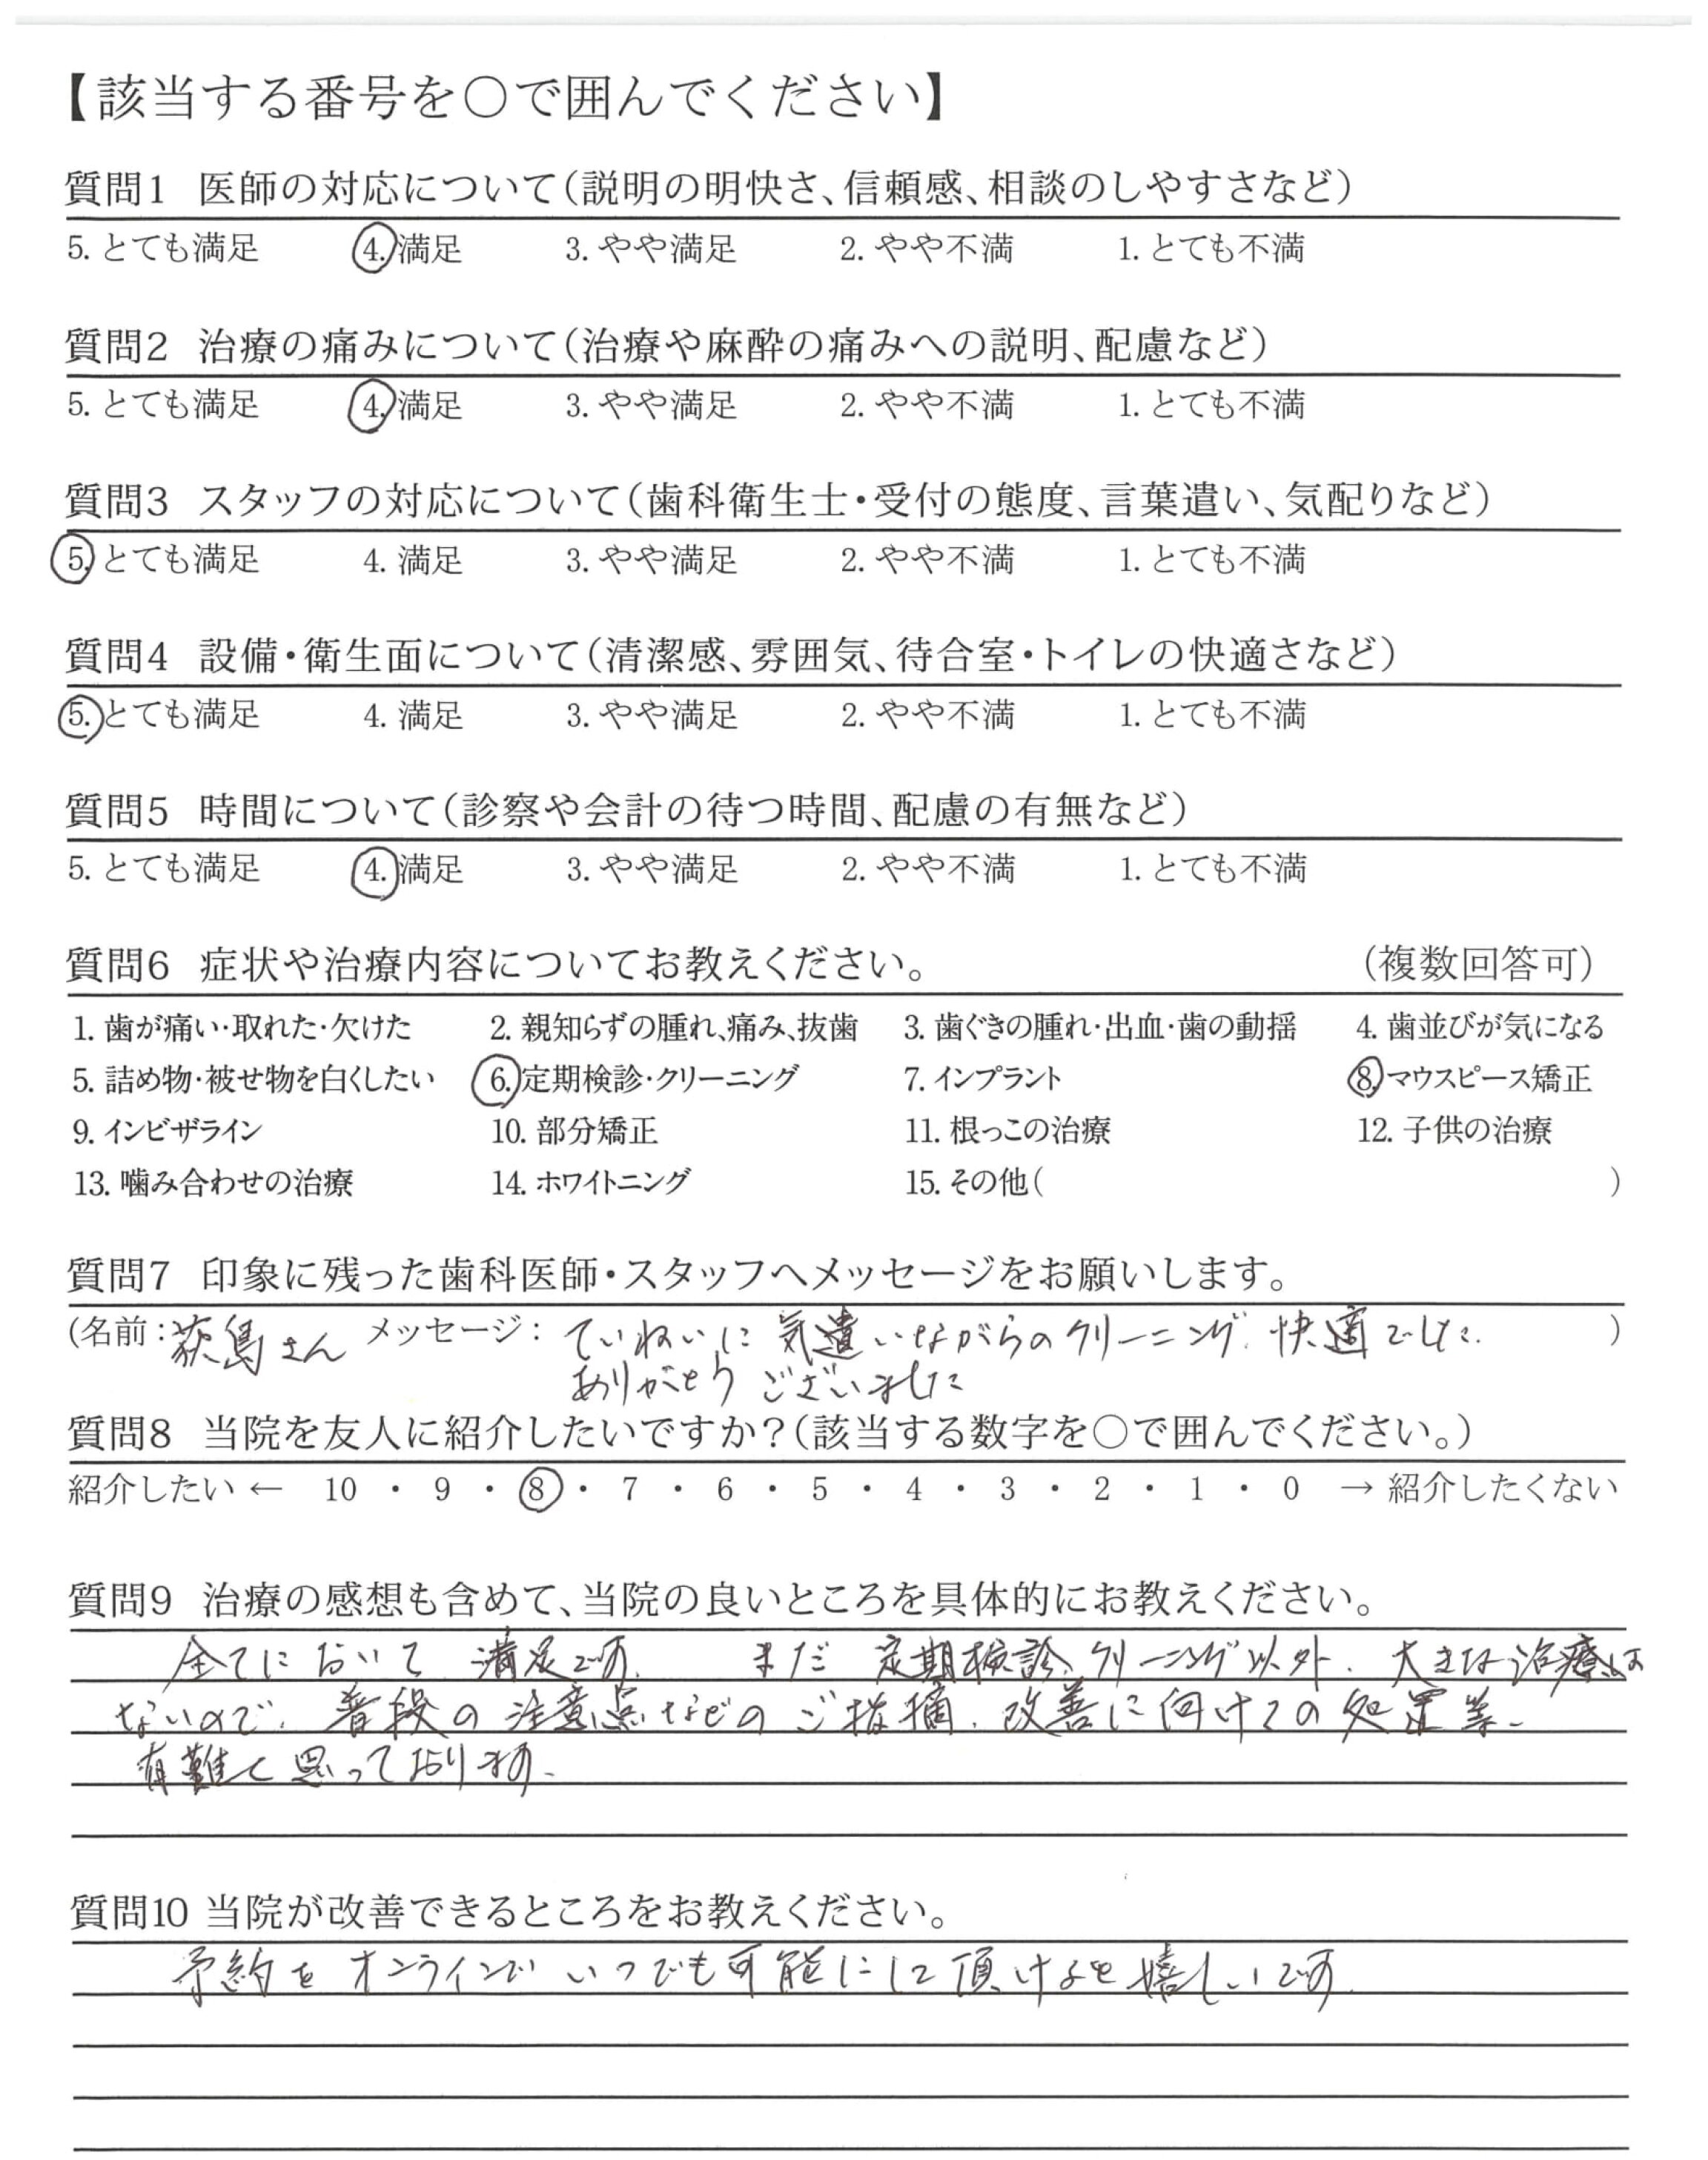 【該当する番号を○で囲んでください】
質問1 医師の対応について(説明の明快さ、信頼感、相談のしやすさなど)
5. とても満足 4. 満足 3. やや満足 2. やや不満 1. とても不満
質問2 治療の痛みについて(治療や麻酔の痛みへの説明、配慮など)
5. とても満足 4. 満足 3. やや満足 2. やや不満 1. とても不満
質問3 スタッフの対応について(歯科衛生士・受付の態度、言葉遣い、気配りなど)
5. とても満足 4. 満足 3. やや満足 2. やや不満 1. とても不満
質問4 設備・衛生面について(清潔感、雰囲気、待合室・トイレの快適さなど)
5. とても満足 4. 満足 3. やや満足 2. やや不満 1. とても不満
質問5 時間について(診察や会計の待つ時間、配慮の有無など)
5. とても満足 4. 満足 3. やや満足 2. やや不満 1. とても不満
質問6 症状や治療内容についてお教えください。 (複数回答可)
1. 歯が痛い・取れた・欠けた 2. 親知らずの腫れ、痛み、抜歯 3. 歯ぐきの腫れ・出血・歯の動揺 4. 歯並びが気になる
5. 詰め物・被せ物を白くしたい 6. 定期検診・クリーニング 7. インプラント 8. マウスピース矯正
9. インビザライン 10. 部分矯正 11. 根っこの治療 12. 子供の治療
13. 噛み合わせの治療 14. ホワイトニング 15. その他( )
質問7 印象に残った歯科医師・スタッフへメッセージをお願いします。
(名前:荻島さん メッセージ: ていねいに 気遣いながらのクリーニング、快適でした。 )
ありがとうございました
質問8 当院を友人に紹介したいですか?(該当する数字を○で囲んでください。)
紹介したい ← 10 ・ 9 ・ 8 ・ 7 ・ 6 ・ 5 ・ 4 ・ 3 ・ 2 ・ 1 ・ 0 → 紹介したくない
質問9 治療の感想も含めて、当院の良いところを具体的にお教えください。
全てにおいて 満足です。 まだ 定期検診、クリーニング以外、大きな治療は
ないので、普段の注意点などのご指摘、改善に向けての処置等、
有難く思っております。
質問10 当院が改善できるところをお教えください。
予約をオンラインでいつでも可能にして頂けると嬉しいです。